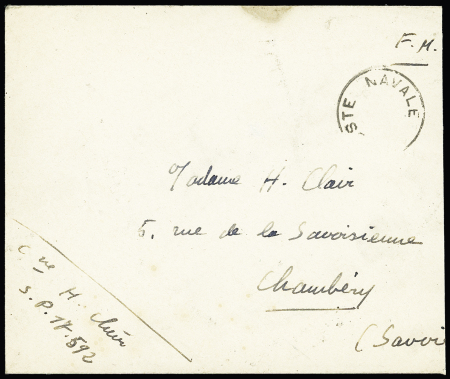 F.M.
STE NAVALE
Madame H. Clair
5. rue de la Savoisienne
Chambéry
(Savoie
C.ne H. Clair
S.P. 18.592